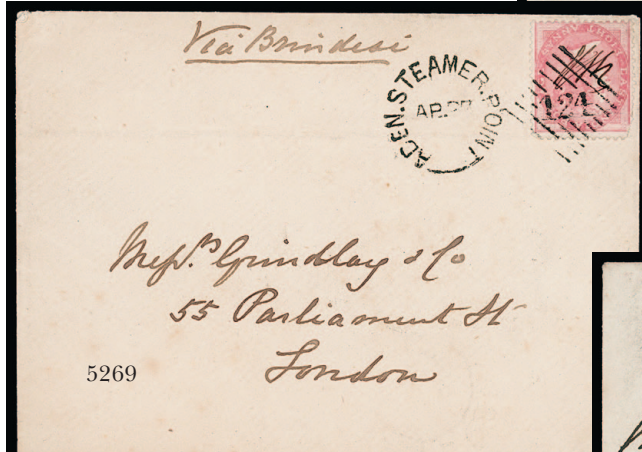 Via Brindisi
ADEN.STEAMER.POINT
AP.27
124
Messrs. Grindlay & Co
55 Parliament St
London
5269